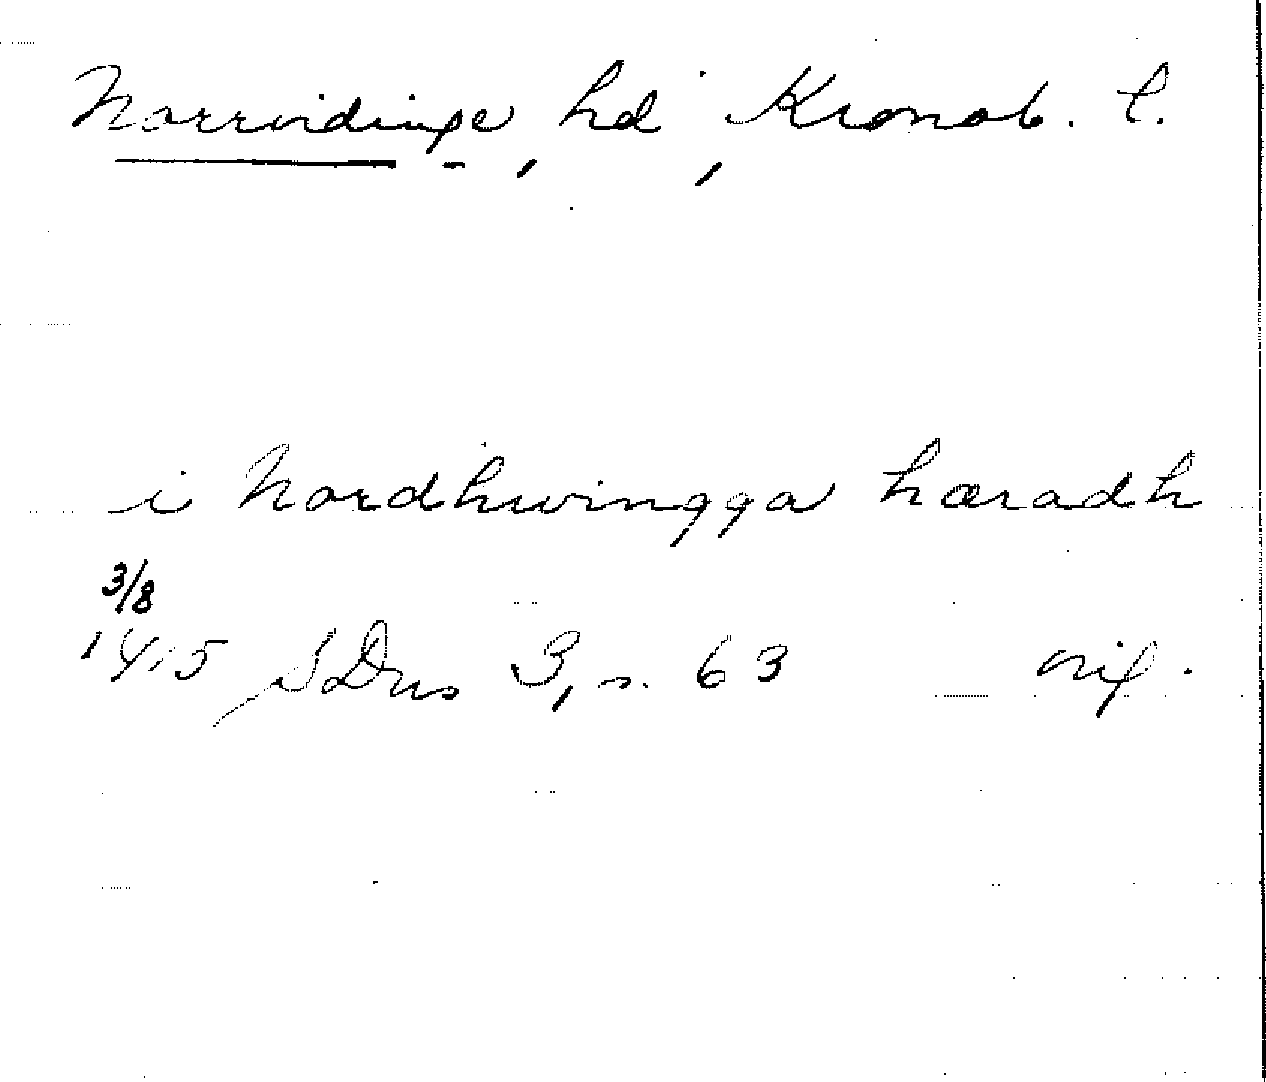 Norrvidinge, hd, Kronob. l.
i Nordhwingga hæradh
3/8
1415 SDns 3, s. 63 orig.